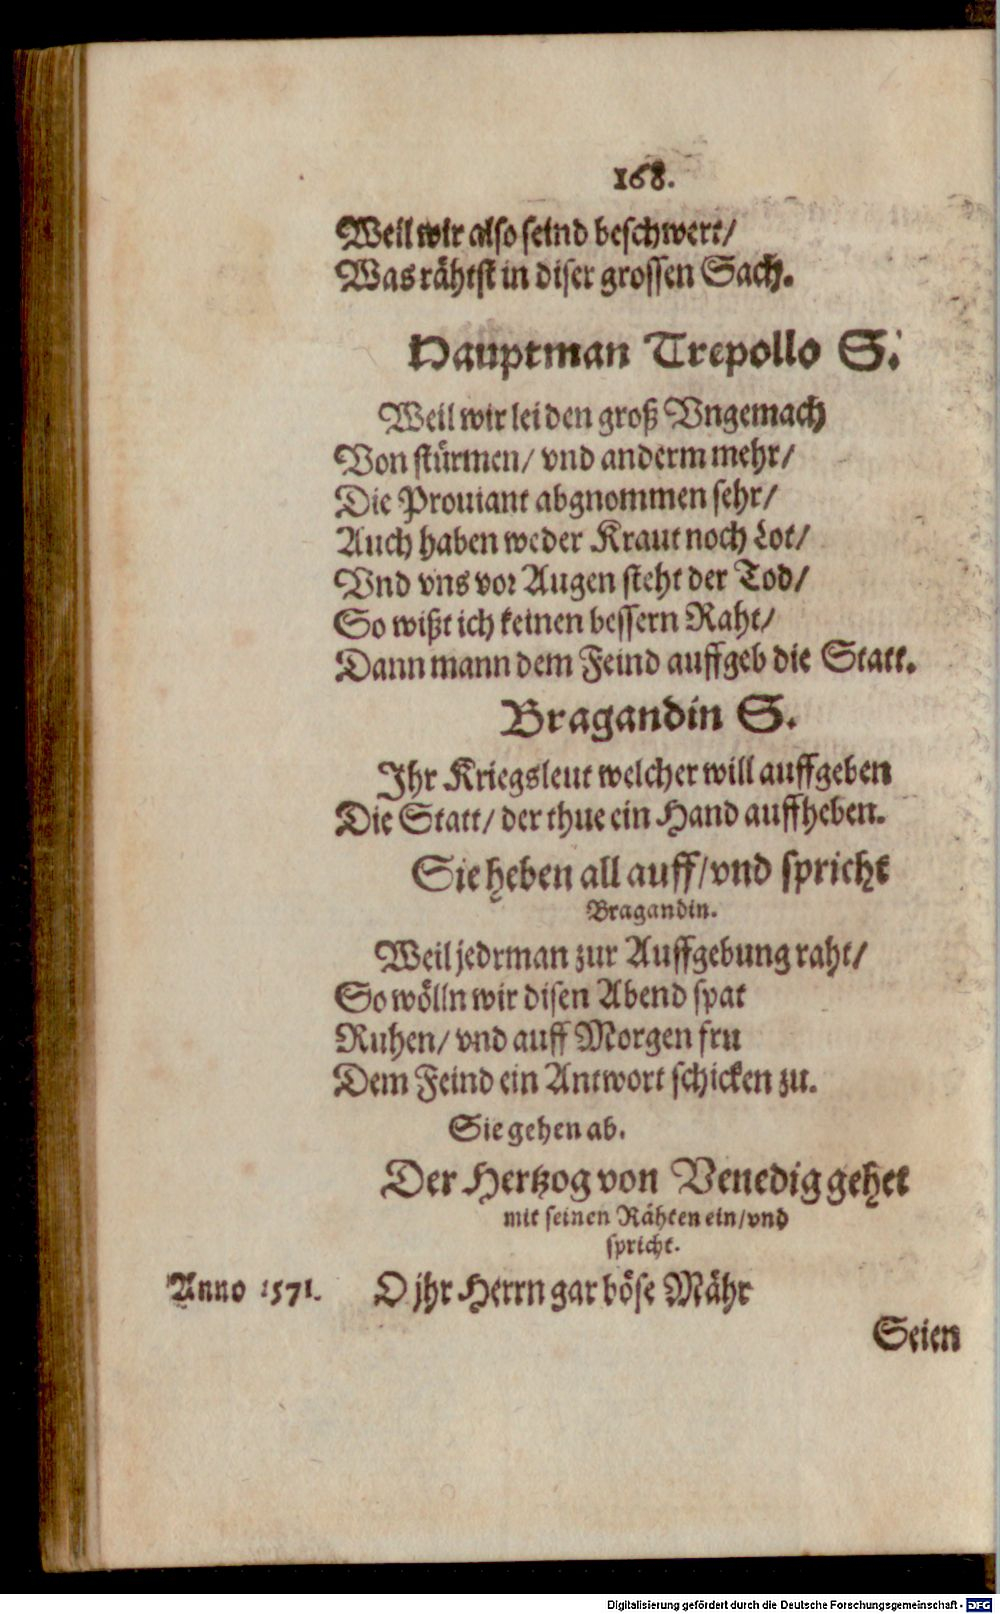 168.
Weil wir also seind beschwert/
Was rähtst in diser grossen Sach.
Hauptman Trepollo S.
Weil wir leiden groß Vngemach
Von stürmen/ vnd anderm mehr/
Die Prouiant abgnommen sehr/
Auch haben weder Kraut noch Lot/
Vnd vns vor Augen steht der Tod/
So wißt ich keinen bessern Raht/
Dann mann dem Feind auffgeb die Statt.
Bragandin S.
Ihr Kriegsleut welcher will auffgeben
Die Statt/ der thue ein Hand auffheben.
Sie heben all auff/ vnd spricht
Bragandin.
Weil jedrman zur Auffgebung raht/
So wölln wir disen Abend spat
Ruhen/ vnd auff Morgen fru
Dem Feind ein Antwort schicken zu.
Sie gehen ab.
Der Hertzog von Venedig gehet
mit seinen Rähten ein/ vnd
spricht.
Anno 1571. O jhr Herrn gar böse Mähr
Seien
Digitalisierung gefördert durch die Deutsche Forschungsgemeinschaft - DFG